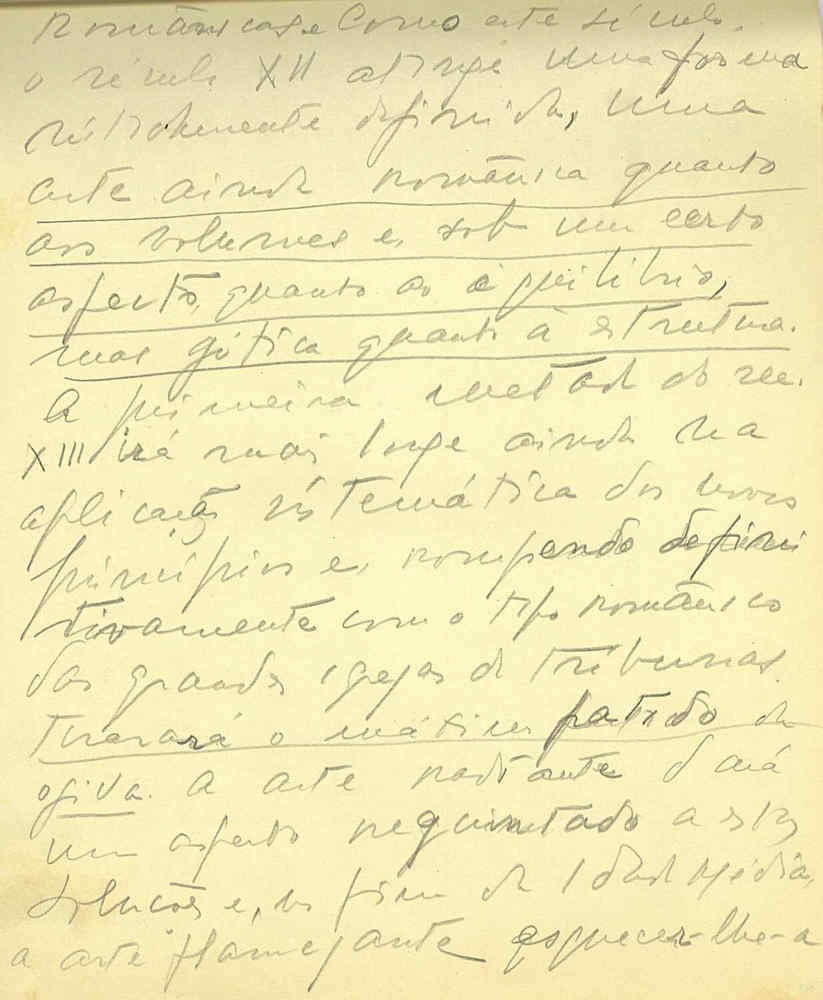 Românicas e como este século,
o século XII atinge uma forma
nitidamente definida, uma
arte ainda românica quanto
aos volumes e, sob um certo
aspecto, quanto ao equilíbrio,
mas gótica quanto à estrutura.
A primeira metade do séc.
XIII irá mais longe ainda na
aplicação sistemática dos novos
princípios e, rompendo defini
tivamente com o tipo românico
das grandes igrejas de tribunas.
Tirará o máximo partido da
ogiva. A arte radiante dará
um aspecto requintado a estas
soluções e, no fim da Idade Média,
a arte flamejante esquecer-lhe-a